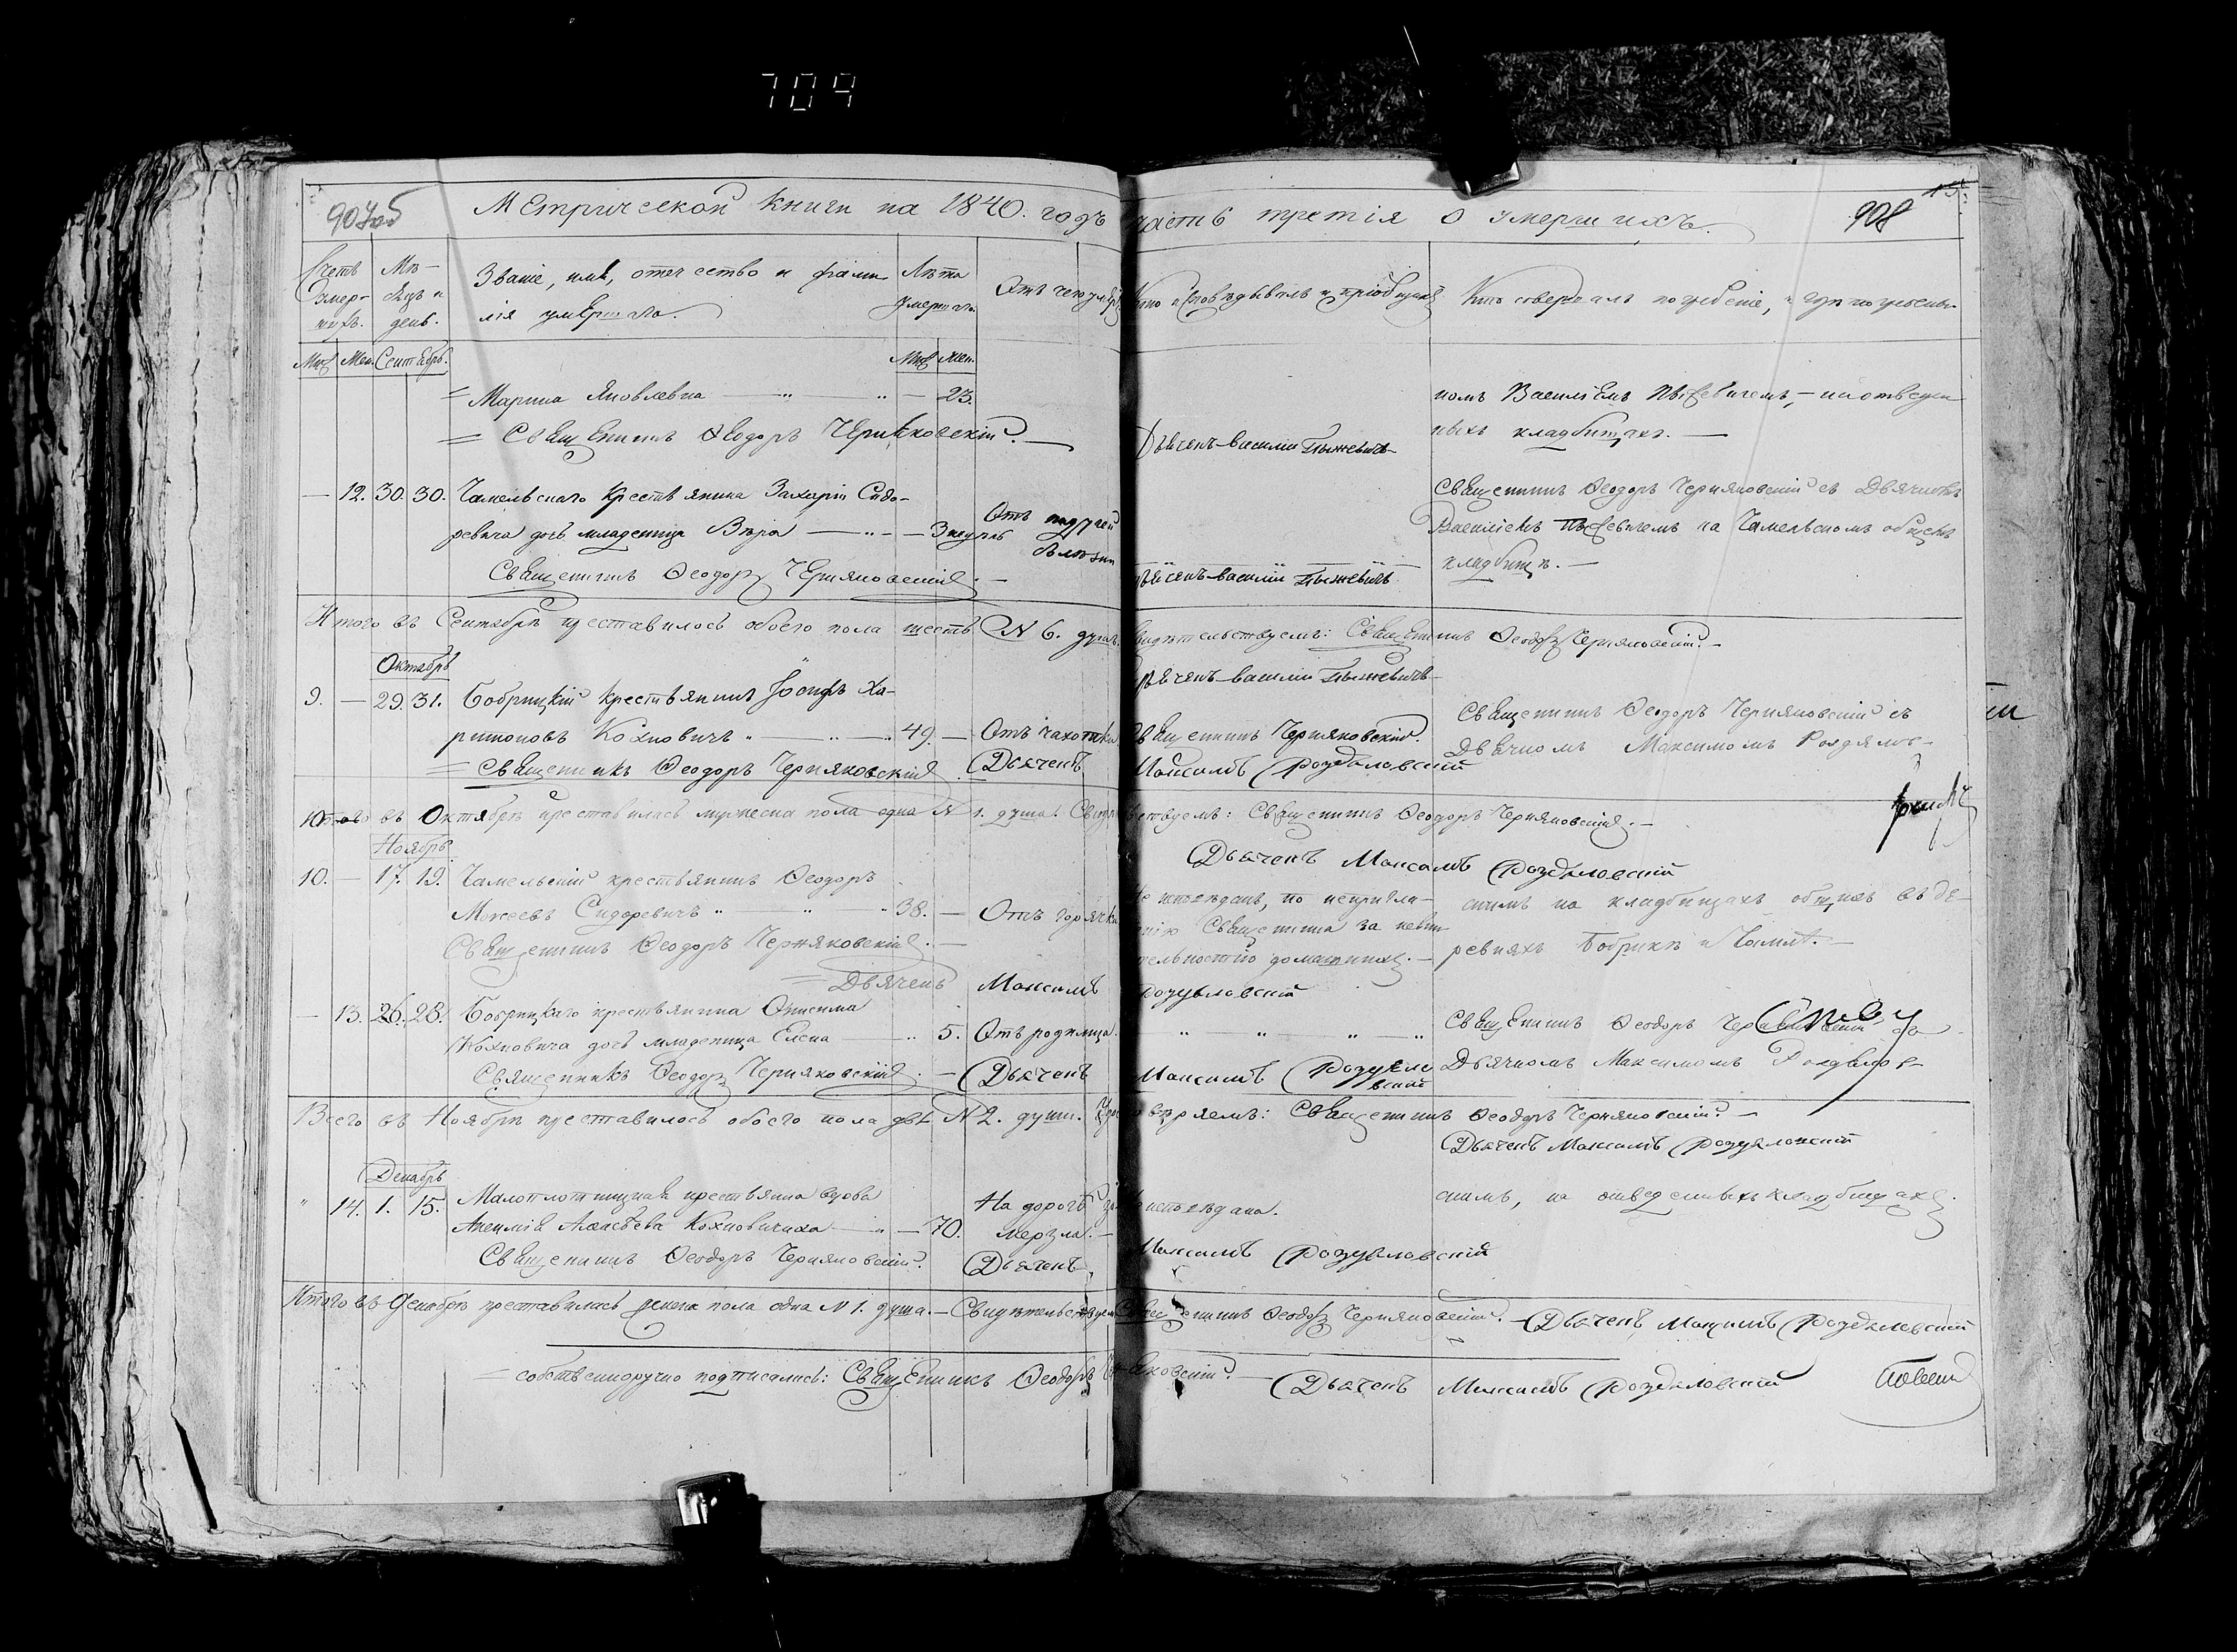 709
907об
Метрической книги на 1840. годъ часть третія о умершихъ.
908
15.
Счетъ умер-шихъ.
Мѣ-сяцъ и день.
Званіе, имя, отечество и фами-
лія умершаго.
Лѣта умершаго.
Отъ чего умеръ
Кто исповѣдывалъ и пріобщалъ
Кто совершалъ погребеніе, и гдѣ погребены
Муж. Жен. Сентябрь.
Муж. Жен.
Марина Яковлевна — " " — 23.
номъ Василіемъ Пыжевичемъ, — на отведен
ныхъ кладбищахъ. —
Священникъ Ѳеодоръ Черняковскій. —
Дьячекъ Василій Пыжевичъ
— 12. 30. 30. Чамельскаго крестьянина Захарія Сидо-
ревича дочь младеница Вѣра — " — 3
Отъ падучей
болѣзни
Священникъ Ѳеодоръ Черняковскій съ Дьячкомъ
Василіемъ Пыжевичемъ на Чамельскомъ общемъ
кладбищѣ. —
Священникъ Ѳеодоръ Черняковскій. —
Дьячекъ Василій Пыжевичъ
Итого въ Сентябрѣ преставилось обоего пола шесть N 6. душъ. Свидѣтельствуемъ: Священникъ Ѳеодоръ Черняковскій. —
Дьячекъ Василій Пыжевичъ
Октябрь
9. — 29. 31. Бобрицкій крестьянинъ Іосифъ Ха-
ритоновъ Кохновичъ " — " — " 49. — Отъ чахотки
Священникъ Черняковскій.
Священникъ Ѳеодоръ Черняковскій съ
Дьячкомъ Максимомъ Роздялов-
Священникъ Ѳеодоръ Черняковскій. Дьячекъ Максимъ Роздяловскій
Итого въ Октябрѣ преставилась мужеска пола одна N 1. душа. Свидѣтельствуемъ: Священникъ Ѳеодоръ Черняковскій. —
Дьячекъ Максимъ Роздяловскій
Ноябрь
10. — 17. 19. Чамельскій крестьянинъ Ѳеодоръ
Мокеевъ Сидоревичъ " — " — " 38. — Отъ горячки
Не исповѣданъ, по непригла-
шенію Священника за
домашнихъ. —
скимъ на кладбищахъ общихъ въ де-
ревняхъ Бобрикѣ и Чамлѣ. —
Священникъ Ѳеодоръ Черняковскій. —
Дьячекъ Максимъ Роздяловскій
— 13. 26. 28. Бобрицкаго крестьянина Онисима
Кохновича дочь младеница Елена — " 5. Отъ родимца. " " " — "
Священникъ Ѳеодоръ Черняковскій со
Дьячкомъ Максимомъ Роздялов-
Священникъ Ѳеодоръ Черняковскій. — Дьячекъ Максимъ Роздяло
вский
Всего въ Ноябрѣ преставилось обоего пола двѣ N 2. души. Удостовѣряемъ: Священникъ Ѳеодоръ Черняковскій. —
Дьячекъ Максимъ Роздяловскій
Декабрь
" 14. 1. 15. Малоплотницкая крестьянка вдова
Алексѣева Кохновичиха — " — 70.
На дорогѣ за-
мерзла. —
Не исповѣдана.
скимъ, на отведенныхъ кладбищахъ.
Священникъ Ѳеодоръ Черняковскій. Дьячекъ Максимъ Роздяловскій
Итого въ Декабрѣ преставилась женска пола одна N 1. душа. — Свидѣтельствуемъ Священникъ Ѳеодоръ Черняковскій. — Дьячекъ Максимъ Роздяловскій
— собственноручно подписались: Священникъ Ѳеодоръ Черняковскій. — Дьячекъ Максимъ Роздяловскій